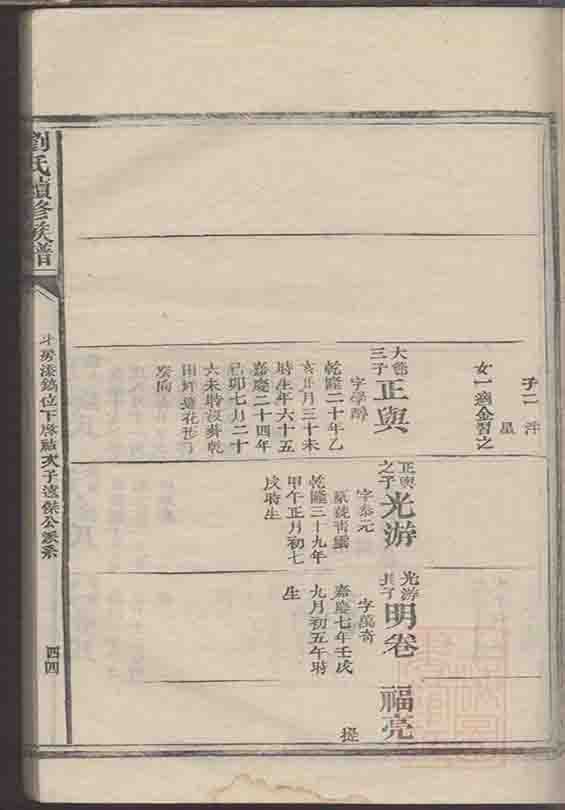 劉氏續修族譜
子二 洋
星
女一適金習之
大
三子
正與
字學醇
乾隆二十年乙
亥正月三十未
時生年六十五
嘉慶二十四年
己卯七月二十
六未時沒葬乾
田坪蓮花形
正與
之子
光游
字泰元
乾隆三十九年
甲午正月初七
戌時生
光游
長子
明卷
字萬奇
嘉慶七年壬戌
九月初五午時
生
福亮
提
次子遠傑公派系
四四